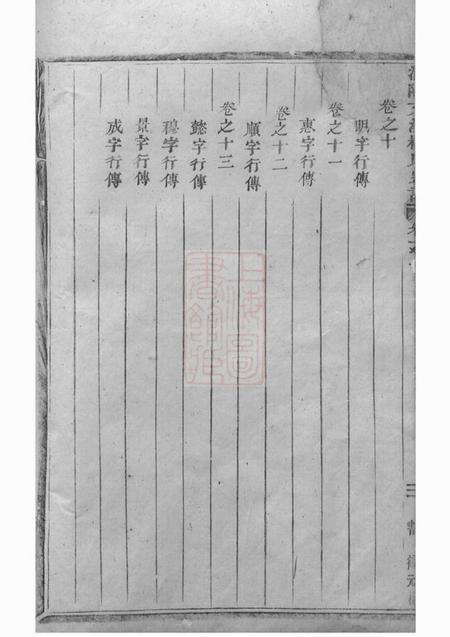 卷之十
明字行傳
卷之十一
惠字行傳
卷之十二
順字行傳
卷之十三
懿字行傳
穆字行傳
景字行傳
成字行傳
上海圖書館藏